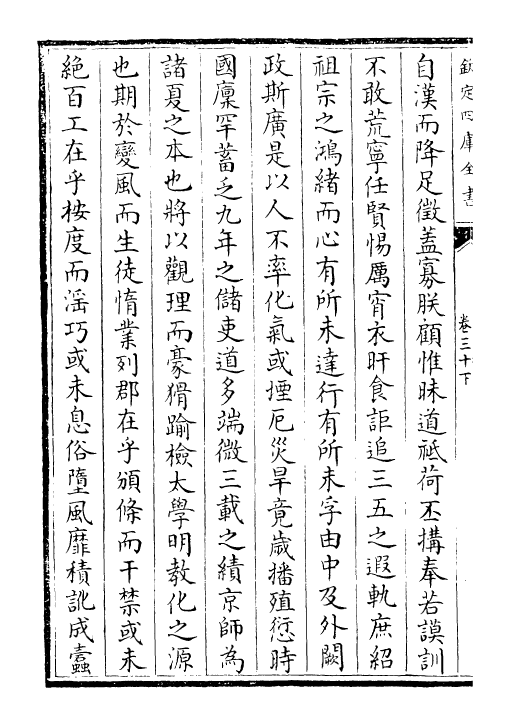 欽定四庫全書
卷三十下
自漢而降足徵蓋寡朕顧惟昧道祗荷丕搆奉若謨訓
不敢荒寧任賢惕厲宵衣旰食詎追三五之遐軌庶紹
祖宗之鴻緒而心有所未達行有所未孚由中及外闕
政斯廣是以人不率化氣或堙厄災旱竟歲播殖愆時
國廩罕蓄乏九年之儲吏道多端微三載之績京師為
諸夏之本也將以觀理而豪猾踰檢太學明教化之源
也期於變風而生徒惰業列郡在乎頒條而干禁或未
絶百工在乎按度而滛巧或未息俗墮風靡積訛成蠧